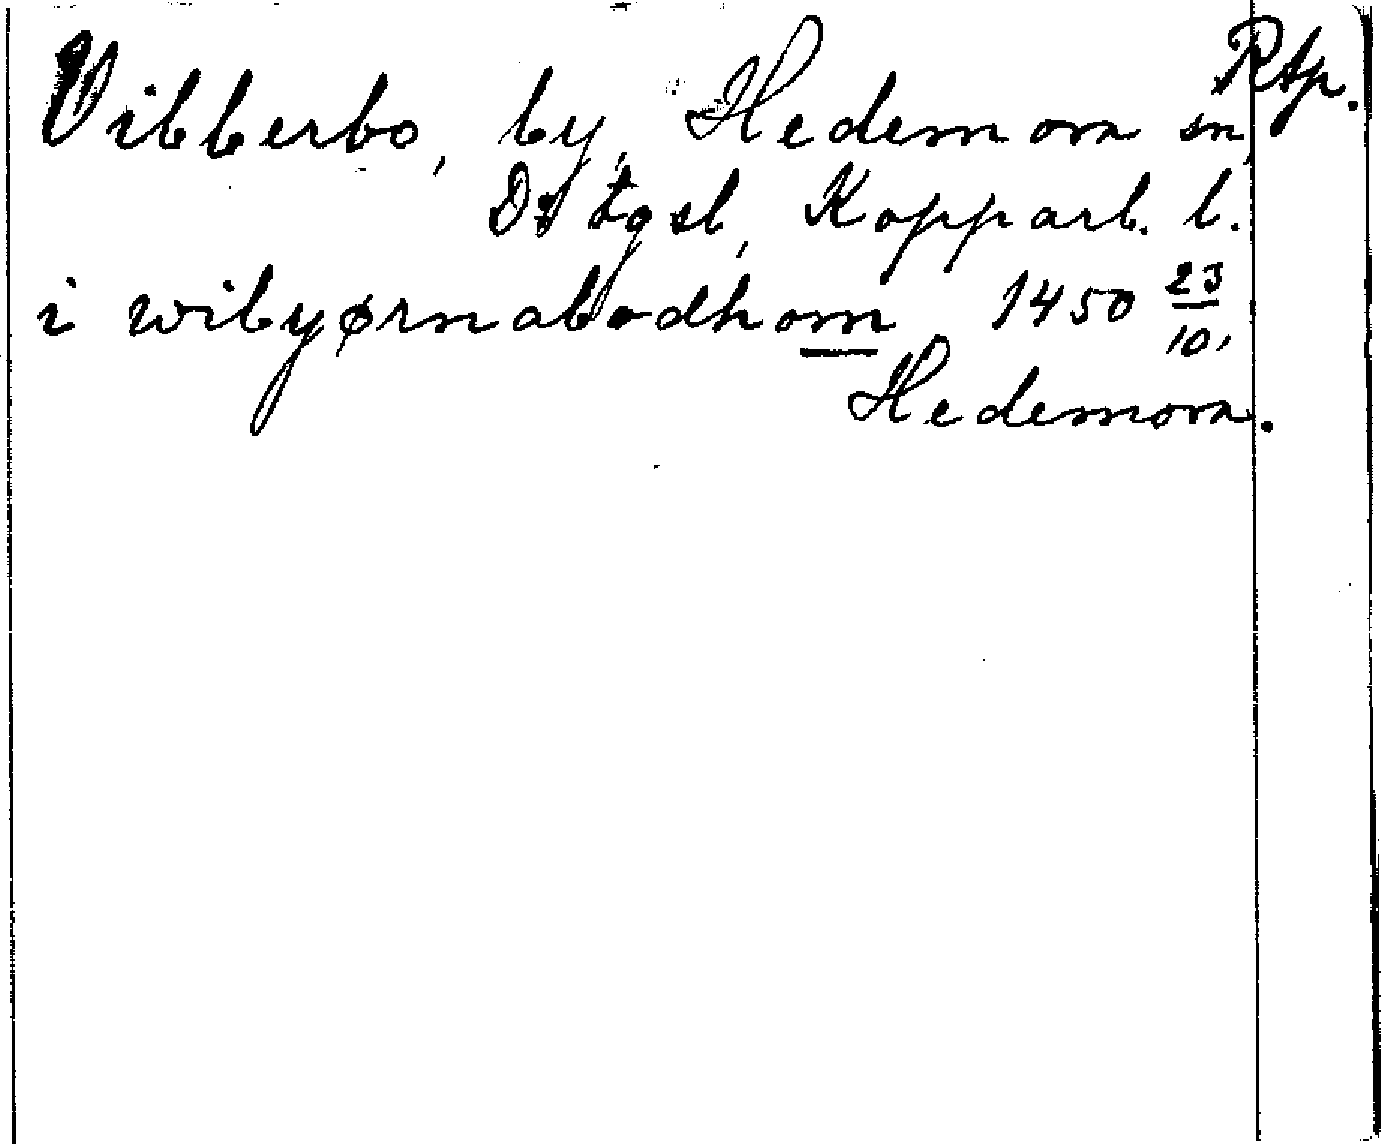 Rtp.
Vibberbo, by, Hedemora sn,
Ds tgsl, Kopparb. l.
i wibyørnabodhom 1450 23/10,
Hedemora.